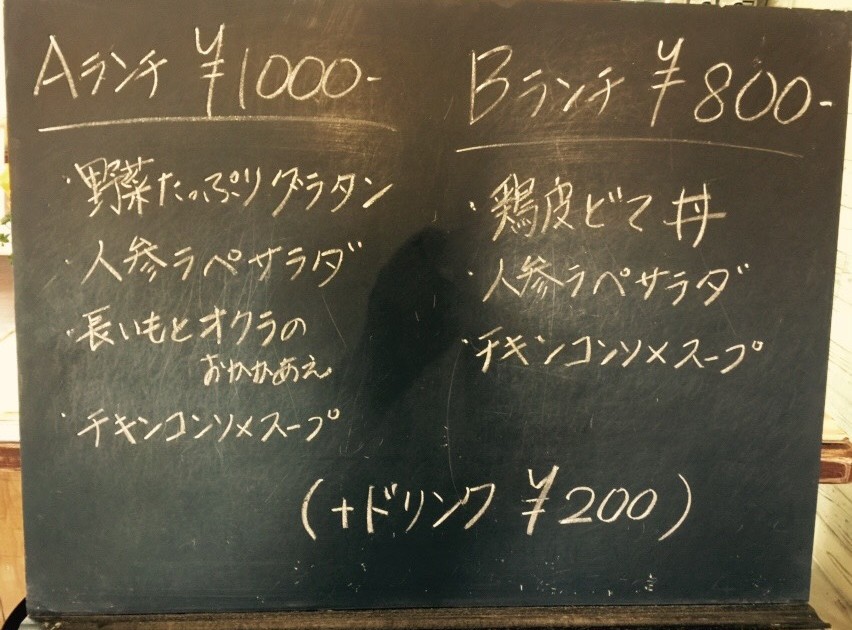 Aランチ ¥1000-
・野菜たっぷりグラタン
・人参ラペサラダ
・長いもとオクラの
おかかあえ
・チキンコンソメスープ
Bランチ ¥800-
・鶏皮どて丼
・人参ラペサラダ
・チキンコンソメスープ
(+ドリンク ¥200)